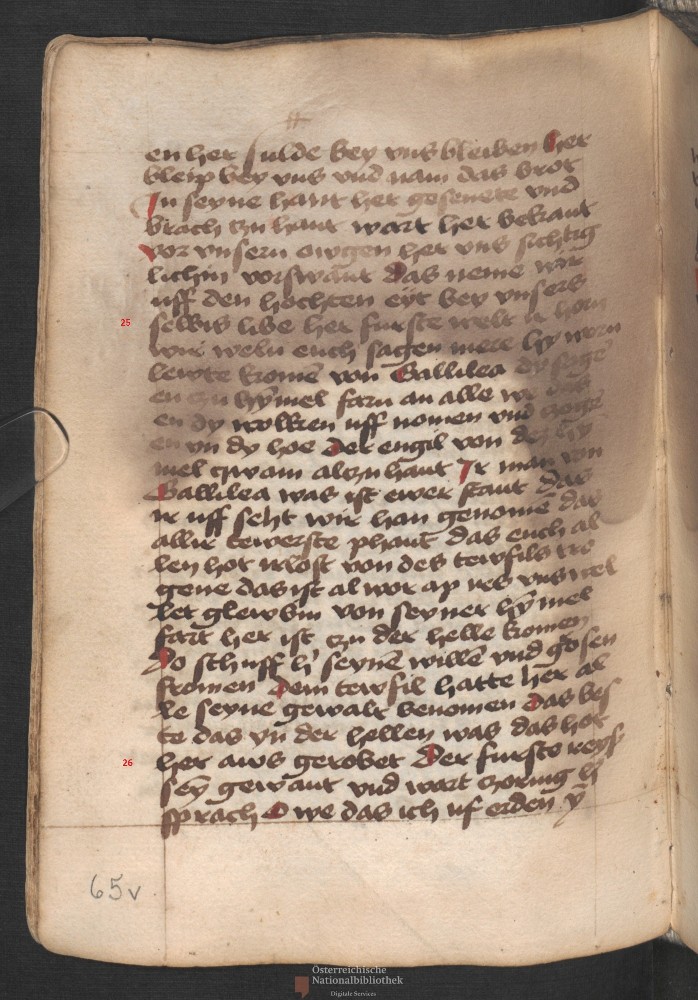 en her sulde bey vns bleiben her
bleip bey vns vnd nam das brot
In seyne hant her gesenete vnd
brach czu hant wart her bekant
vor vnsern owgen her vns sichtig
lichin vorswant das neme wir
uff den hochsten eyt bey vnsers
25 selbis libe her furste welt ir horn
wir weln euch sagen mere hy worn
lewte komē von Gallilea dy sagē
en czu hȳmel farn an alle
en dy wolken uff nomen vnd
en yn dy hoe Der engil von
mel qwam alczu hant Ir man von
Gallilea was ist ewer stant das
ir uff seht wir han genomē das
allir tewerste phant das euch al
len hot irlost von des tewfils tro
gene das ist al wor ap irs vns wel
let glewbin von seyner hȳmel
fart her ist czu der helle komen
Do schuff h' seynē willē vnd gosen
fromen Dem tewfil hatte her al
le seyne gewalt benomen Das bes
te das yn der hellen was das hot
26 her aws gerobet Der furste reyß
sey gewant vnd wart czornig h'
sprach O we das ich uf erden ȳ
65v
Österreichische
Nationalbibliothek
Digitale Services